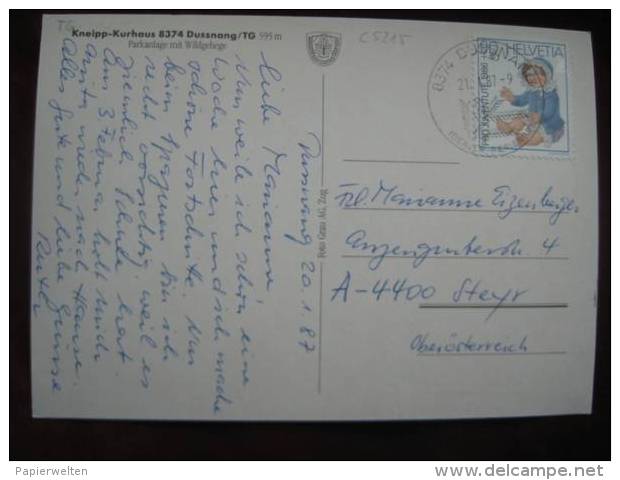 TG
Kneipp-Kurhaus 8374 Dussnang/TG 595 m
Parkanlage mit Wildgehege
C5215
Dussnang 20.1.87
Liebe Marianne,
Nun weile ich schon eine
Woche hier und ich mache
schöne Fortschritte. Nur
beim Spazieren bin ich
recht vorsichtig, weil es
ziemlich Schnee hat.
Am 3. Februar holt mich
wieder nach Hause.
Alles Gute und liebe Grüsse
Foto Gross AG, Zug
8374 DUSSNANG
HELVETIA
PRO JUVENTUTE 1986
Frl. Marianne Eizenberger
4
A-4400 Steyr
Oberösterreich
Papierwelten
www.delcampe.net